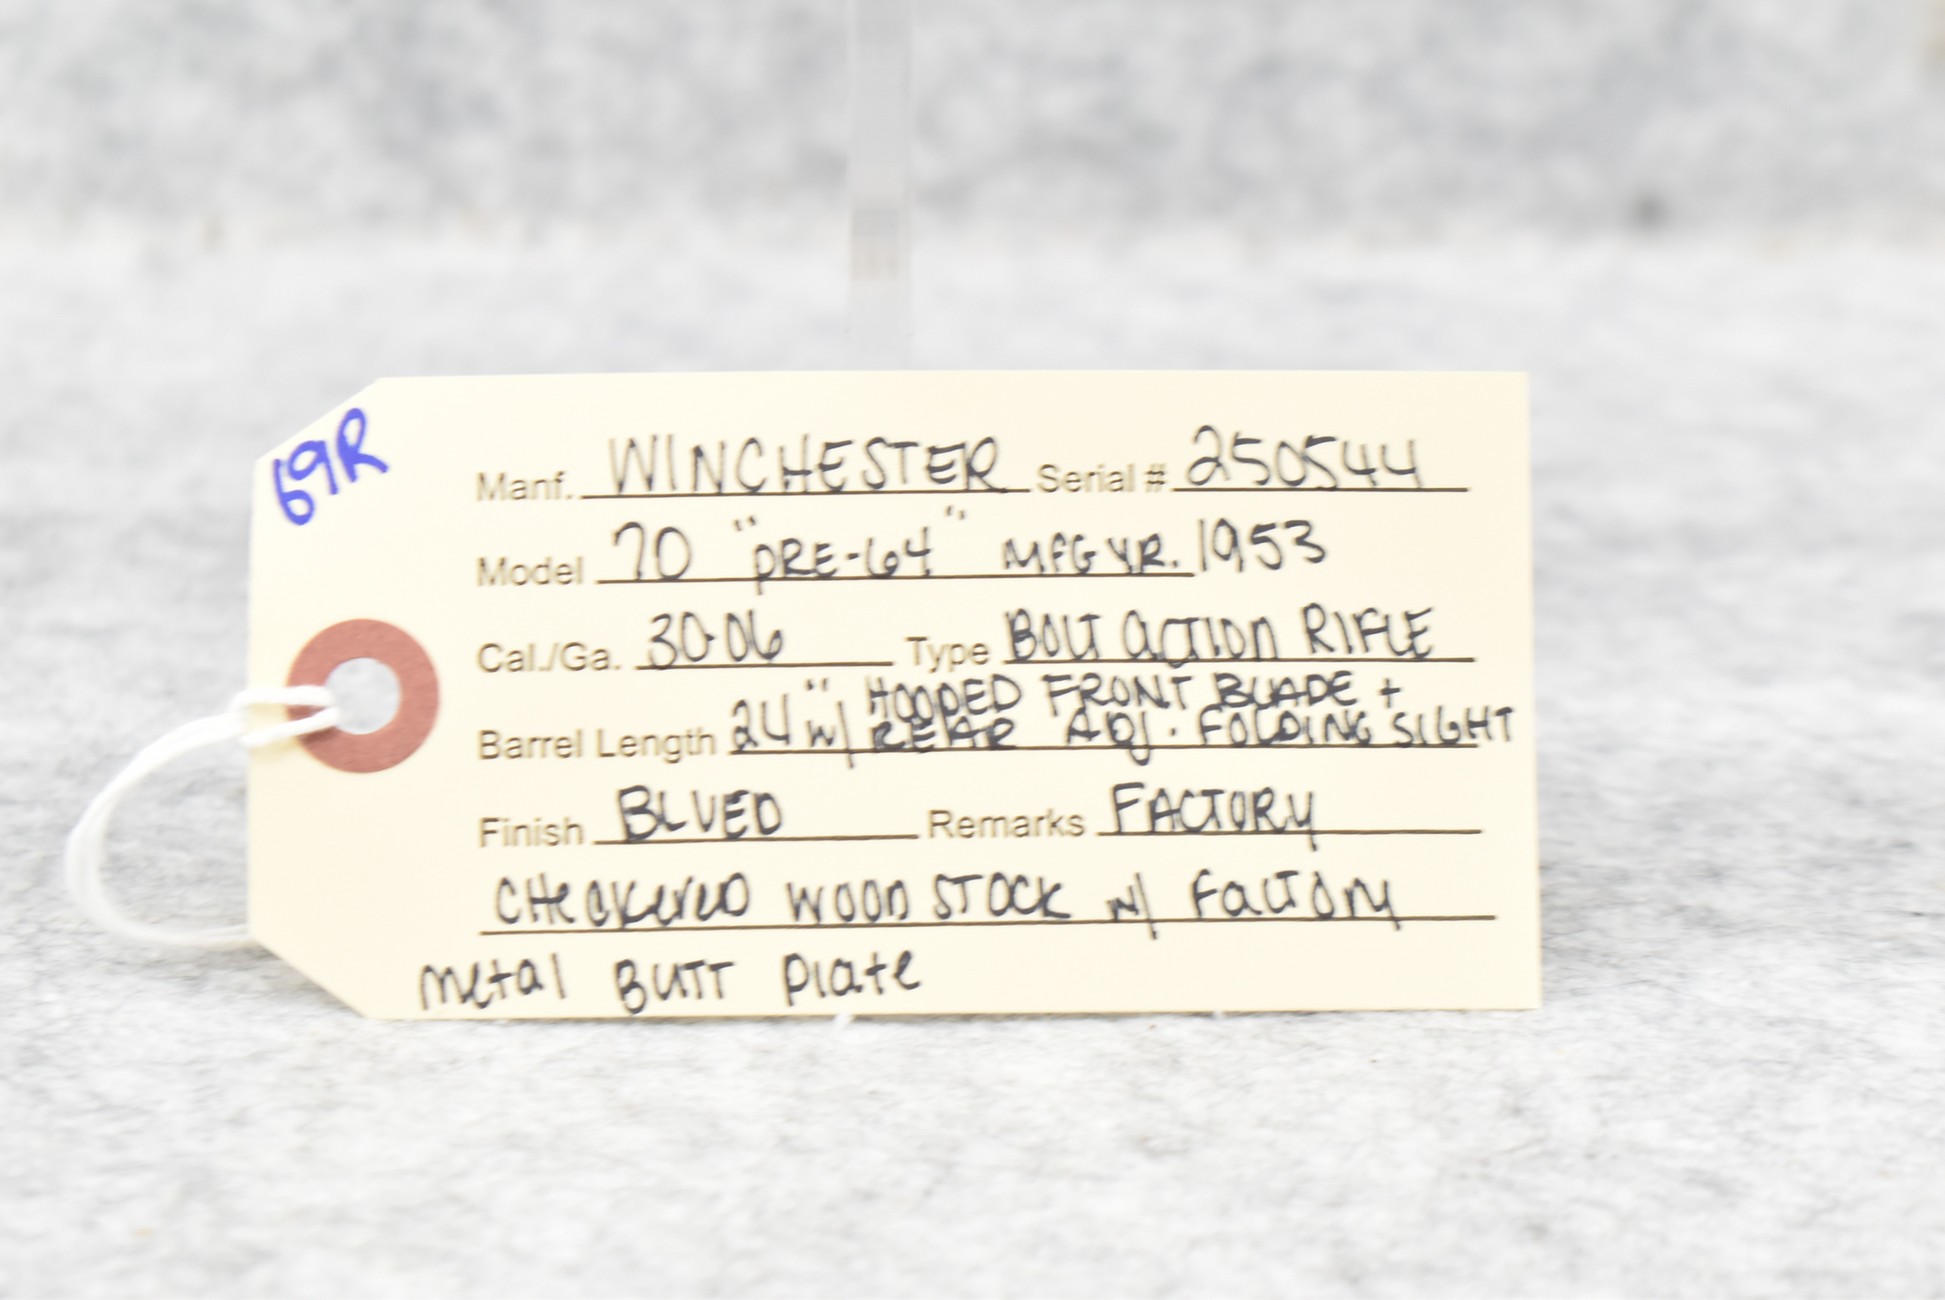 69R
Manf. WINCHESTER Serial # 250544
Model 70 "PRE-64" MFG YR. 1953
Cal./Ga. 30-06 Type BOLT ACTION RIFLE
Barrel Length 24" w/ HOODED FRONT BLADE +
REAR ADJ. FOLDING SIGHT
Finish BLUED Remarks FACTORY
CHECKERED WOOD STOCK w/ FACTORY
METAL BUTT PLATE